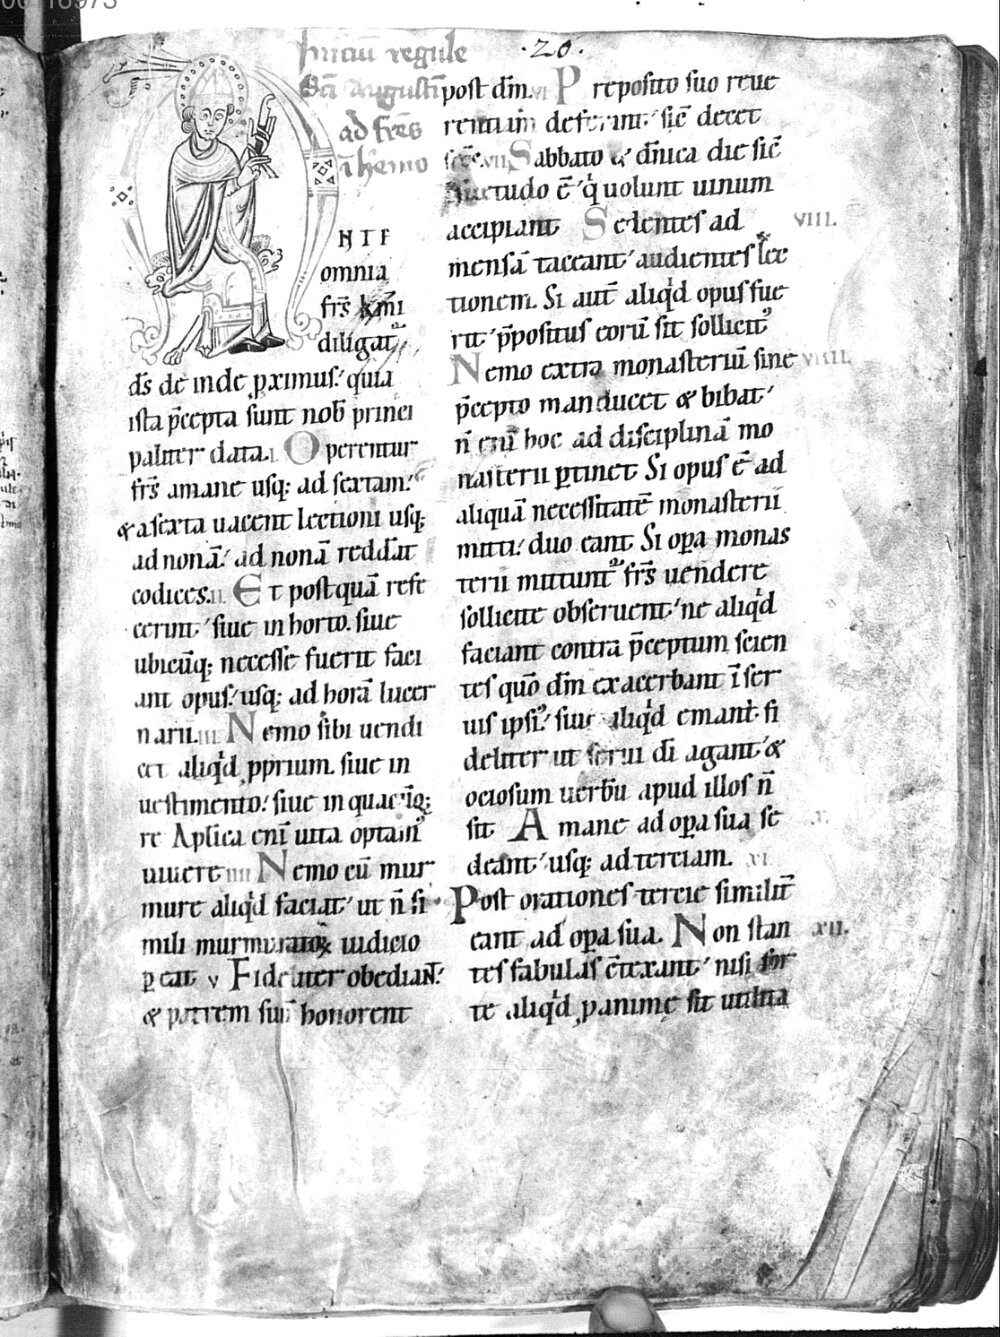 ·20·
Iniciu regule
Sci Augustini
ad fr̄es
ī heremo
NTE
omnia
fr̄s kmi
diligat᷑
ds̄ de inde ꝓximus: quia
ista p̄cepta sunt nob̄ princi
paliter data. I Operentur
fr̄s a mane usq; ad sextam:
& a sexta uacent lectioni usq;
ad nonā: ad nonā reddāt
codices. II Et postquā refe
cerint siue in horto. siue
ubicūq; necesse fuerit faci
ant opus: usq; ad horā lucer
narii. III Nemo sibi uendi
cet aliqd ꝓprium. siue in
uestimento: siue in quacūq;
re Aplica eni uita optam᷑
uiuere IIII Nemo cū mur
mure aliqd faciat ut n̄ si
mili murmuratoꝝ iudicio
ꝑeat V Fideliter obediant:
& patrem suū honorent
post dm̄. VI Preposito suo reue
rentiam deferint sic̄ decet
VII Sabbato & dn̄ica die sic̄
c̄suetudo ē qi uolunt uinum
accipiant Sedentes ad VIII.
mensā taceant audientes lec
tionem. Si aut̄ aliqd opus fue
rit p̄positus eorū sit sollicit᷒
Nemo extra monasteriū sine VIIII.
p̄cepto manducet & bibat
n̄ eni hoc ad disciplinā mo
nasterii ꝑtinet Si opus ē ad
aliquā necessitatē monasterii
mitti: duo eant Si oꝑa monas
terii mittunt᷑ fr̄s uendere
sollicite obseruent ne aliqd
faciant contra p̄ceptum scien
tes quo dm̄ exacerbant ī ser
uis ipsi᷒: siue aliqd emant. fi
deliter ut serui di agant &
ociosum uerbū apud illos n̄
sit A mane ad oꝑa sua se X.
deant usq; ad terciam. XI
Post orationes tercie similit̄
eant ad oꝑa sua. Non stan XII.
tes fabulas c̄texant nisi for
te aliqd ꝓ anime sit utilita